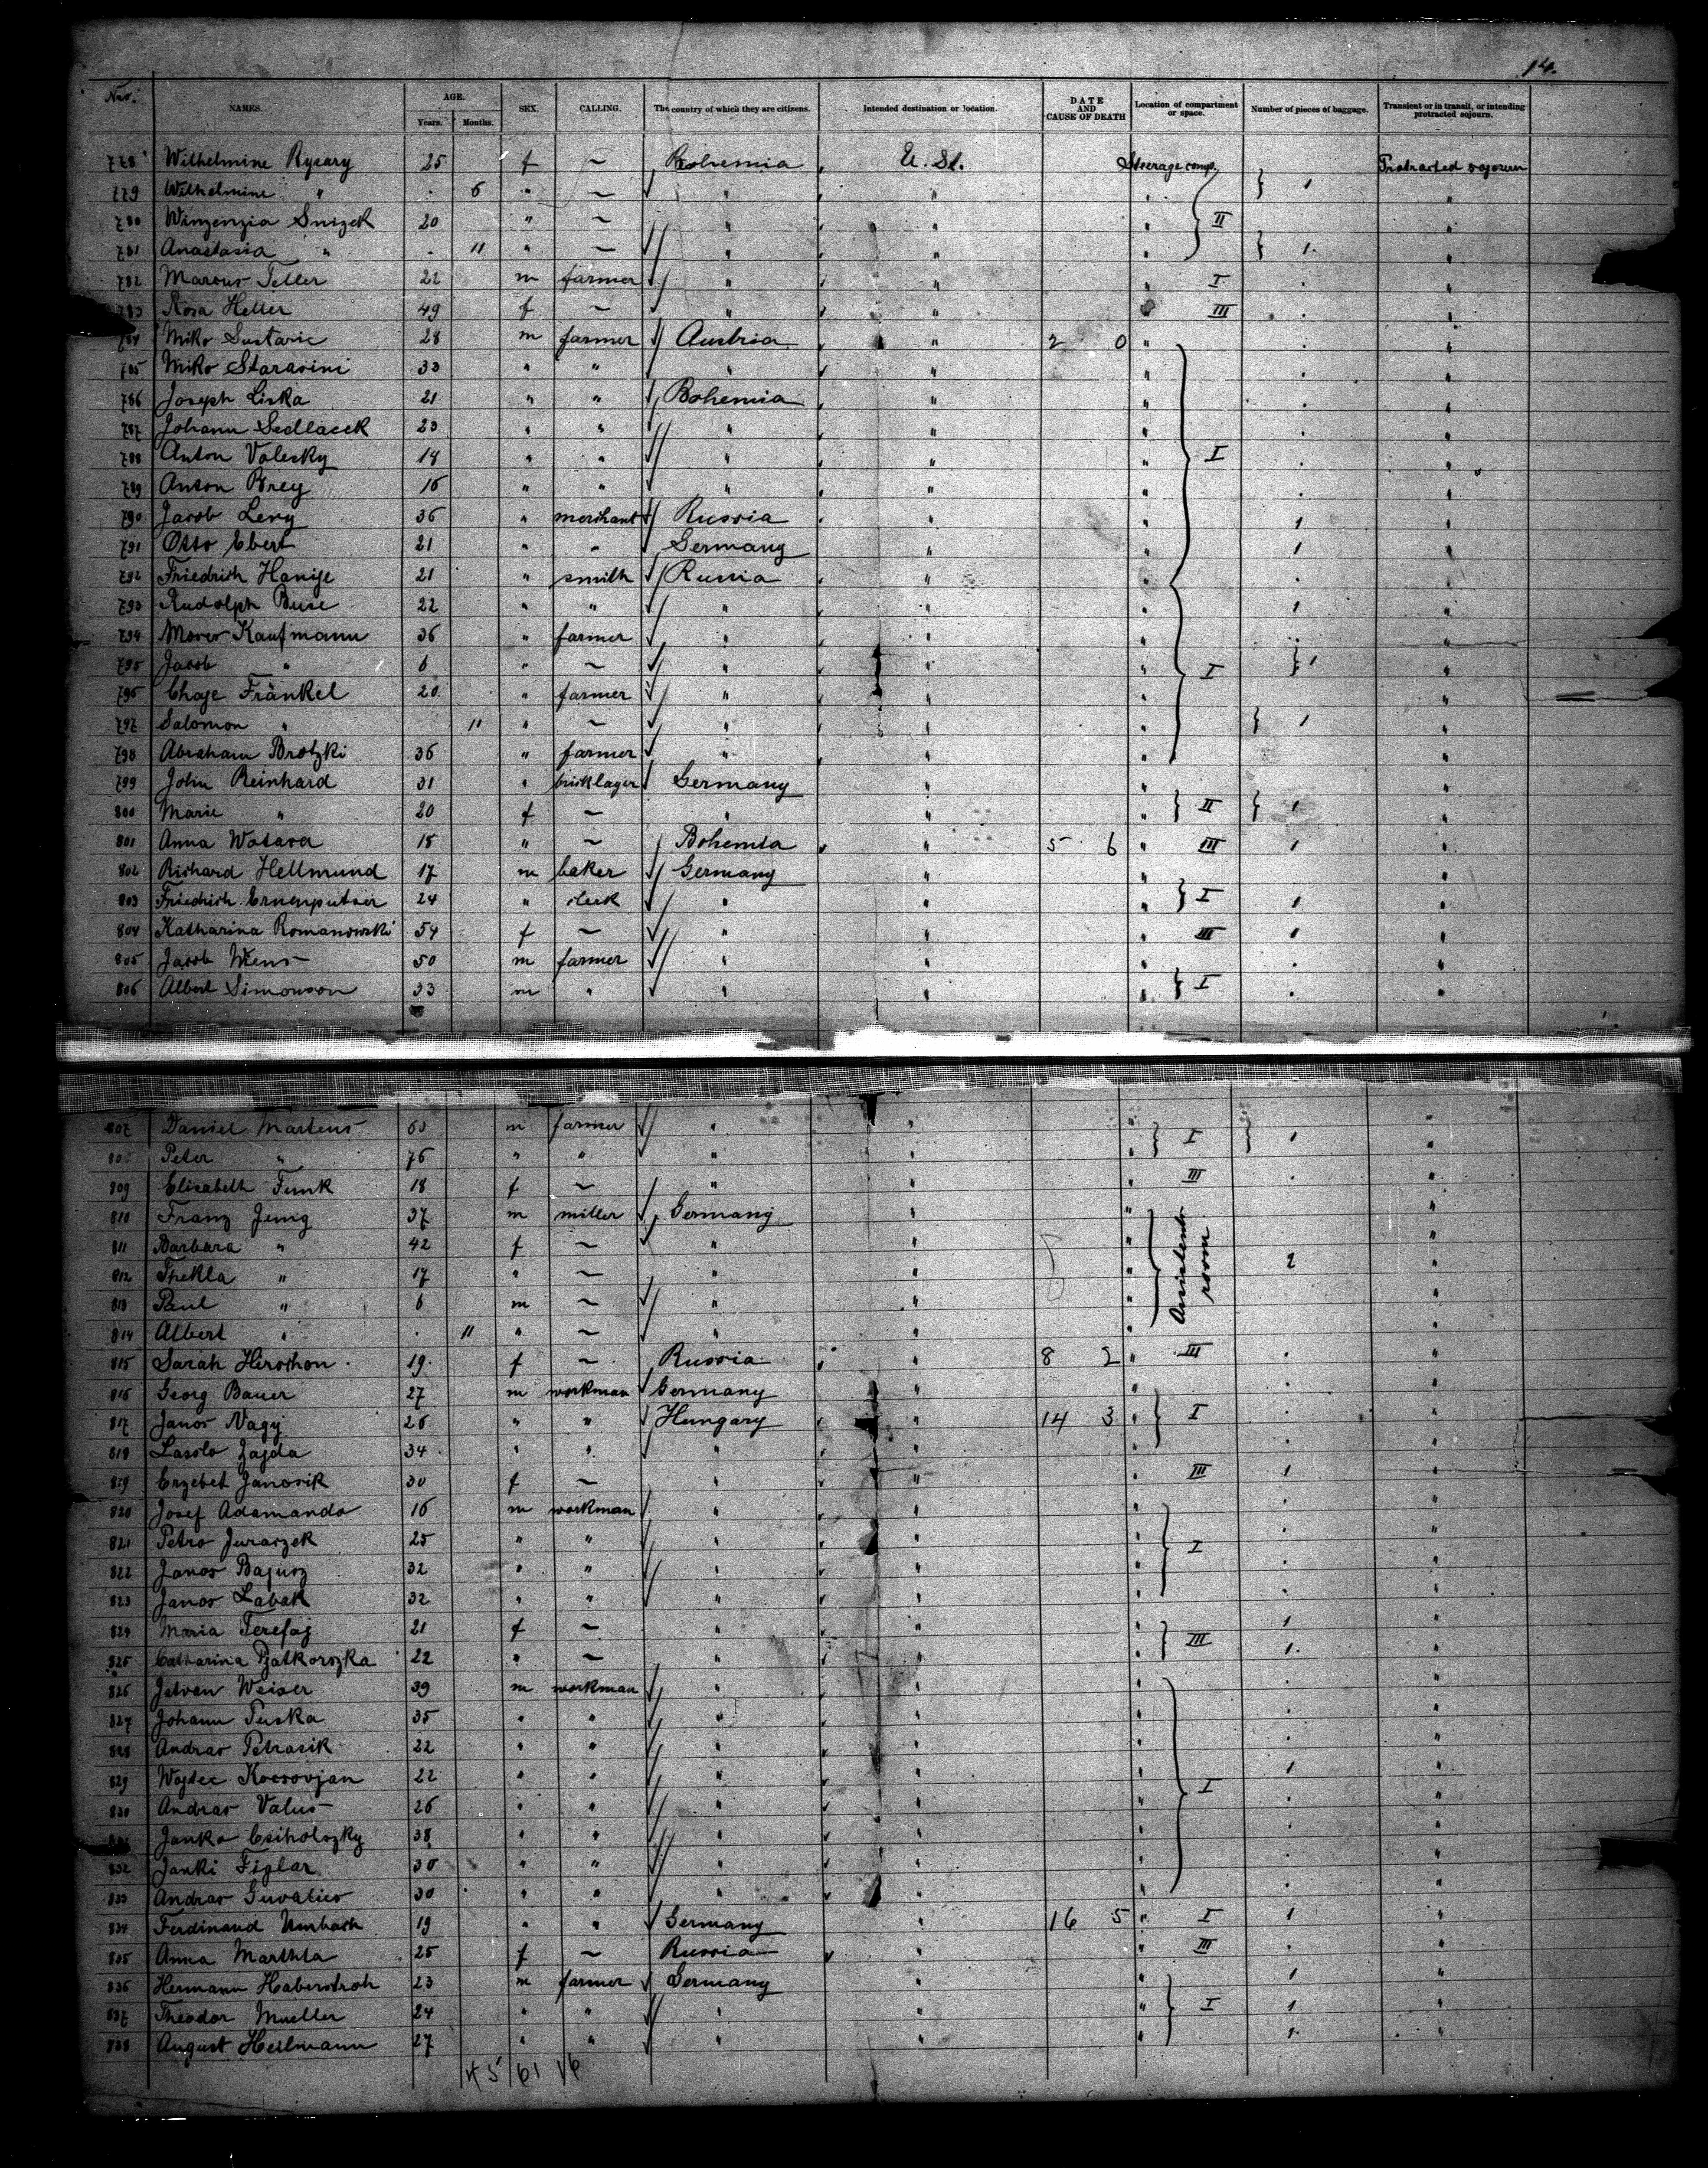 14.
Nro. NAMES. AGE. Years. Months. SEX. CALLING. The country of which they are citizens. Intended destination or location. DATE AND CAUSE OF DEATH Location of compartment or space. Number of pieces of baggage. Transient or in transit, or intending protracted sojourn.
778 Wilhelmine Rysary 25 f ~ Bohemia U. St. Steerage comp. Protracted sojourn
779 Wilhelmine " . 6 " ~ " " " } 1 "
780 Winzenzia Snizek 20 " ~ " " " II "
781 Anastasia " . 11 " ~ " " " } 1. "
782 Marcus Teller 22 m farmer " " " I . "
783 Rosa Heller 49 f ~ " " III . "
784 Miko Sustaric 28 m farmer Austria " 2 0 " . "
785 Miko Starasini 33 " " " " " . "
786 Joseph Liska 21 " " Bohemia " " . "
787 Johann Sedlacek 23 " " " " " . "
788 Anton Valesky 18 " " " " " I . "
789 Anton Brey 16 " " " " " . "
790 Jacob Levy 36 " merchant Russia " " 1 "
791 Otto Ebert 21 " " Germany " " 1 "
792 Friedrich Hanije 21 " smith Russia " " . "
793 Rudolph Buse 22 " " " " " 1 "
794 Moses Kaufmann 36 " farmer " " " "
795 Jacob " 6 " ~ " " " I } 1 "
796 Chaje Fränkel 20 " farmer " " " "
797 Salomon " 11 " ~ " " " } 1 "
798 Abraham Brotzki 36 " farmer " " " "
799 John Reinhard 31 " bricklayer Germany " " "
800 Marie " 20 f ~ " " " } II } 1 "
801 Anna Watava 18 " ~ Bohemia " 5 6 " III 1 "
802 Richard Hellmund 17 m baker Germany " " "
803 Friedrich 24 " clerk " " " } I 1 "
804 Katharina Romanowski 54 f ~ " " " III 1 "
805 Jacob Wiens 50 m farmer " " " . "
806 Albert Simonson 33 m " " " " } I . "
807 Daniel Martens 60 m farmer " " " } I } 1 "
808 Peter " 76 " " " " "
809 Elisabeth Funk 18 f ~ " " " III . "
810 Franz Jenig 37 m miller Germany " " "
811 Barbara " 42 f ~ " " " "
812 Thekla " 17 " ~ " " " Assistents room 2 "
813 Paul " 6 m ~ " " " "
814 Albert " . 11 " ~ " " " "
815 Sarah Hirschon 19 f ~ Russia " 8 2 " III . "
816 Georg Bauer 27 m workman Germany " " . "
817 Janos Nagy 26 " " Hungary " 14 3 " } I . "
818 Laszlo Zajda 34 " " " " " . "
819 Erzebet Janosik 30 f ~ " " " III 1 "
820 Josef Adamando 16 m workman " " " . "
821 Petro Juraszek 25 " " " " " . "
822 Janos Bajusz 32 " " " " " I . "
823 Janos Labak 32 " " " " " . "
824 Maria Terefaj 21 f ~ " " " 1 "
825 Catharina Pzatkorszka 22 " ~ " " " } III 1. "
826 Istvan Weiser 39 m workman " " " . "
827 Johann Puska 35 " " " " " . "
828 Andras Petrasik 22 " " " " " . "
829 Wojtec Kocsovjan 22 " " " " " 1 "
830 Andras Valus 26 " " " " " I . "
Janko Csiholszky 38 " " " " " . "
832 Janki Figlar 30 " " " " " . "
833 Andras Guvalics 30 " " " " " . "
834 Ferdinand Umbach 19 " " Germany " 16 5 " I 1 "
835 Anna Marthla 25 f ~ Russia " " III . "
836 Hermann Haberstroh 23 m farmer Germany " " 1 "
837 Theodor Mueller 24 " " " " " } I 1 "
838 August Heilmann 27 " " " " " 1. "
45 61 16